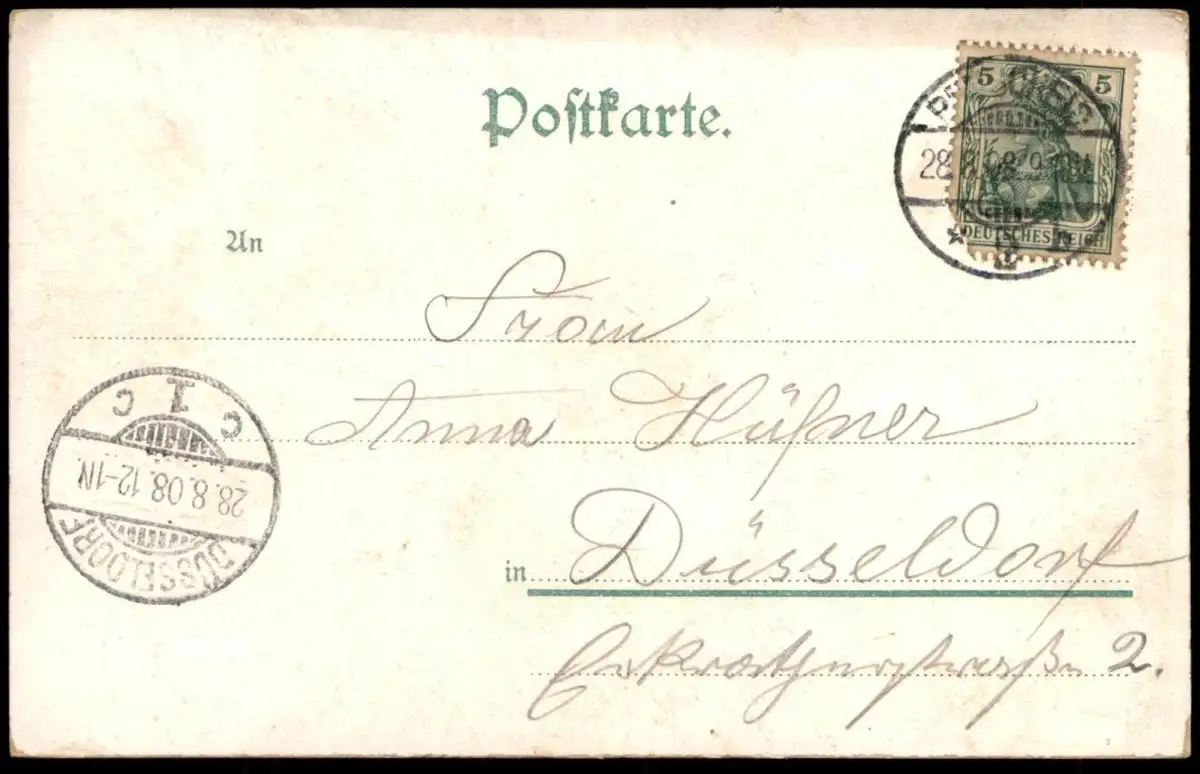 Postkarte.
5 5
DEUTSCHES REICH
28.8.08
An
Frau
Anna Hüfner
in Düsseldorf
Erkratherstraße 2.
C 1 C
28.8.08.12-1N
DÜSSELDORF